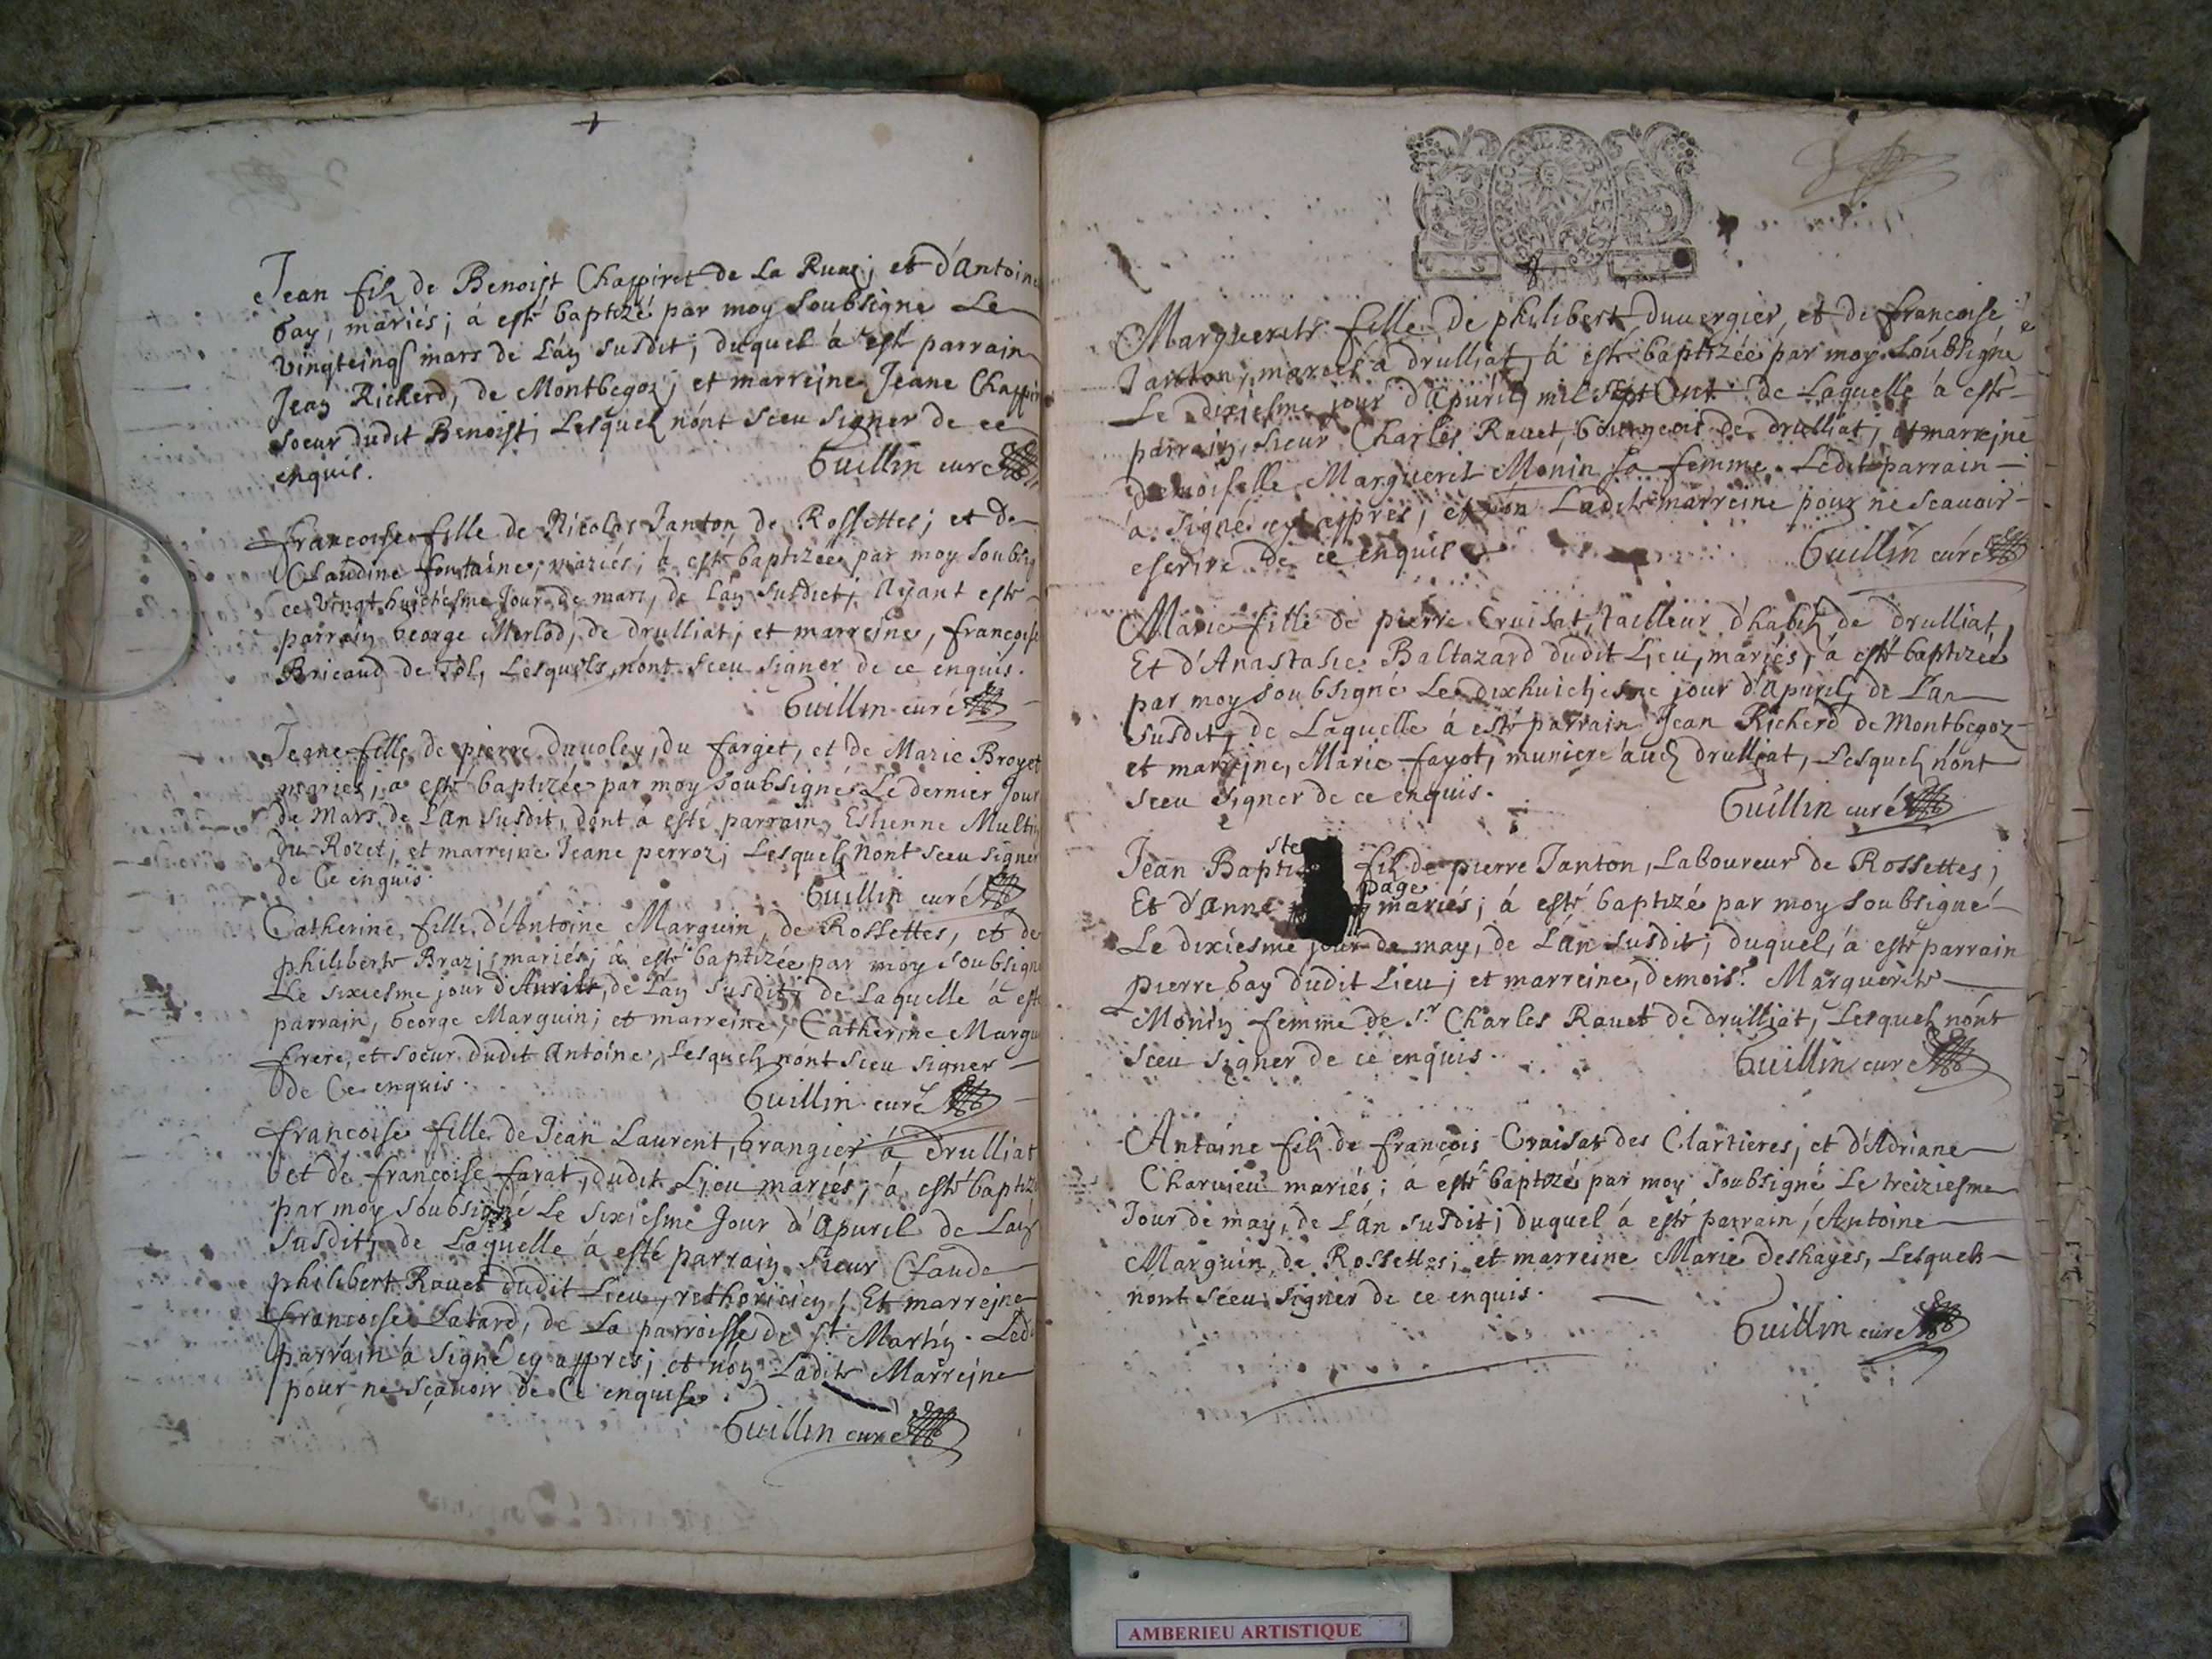 Jean fils de Benoist Chappiret de La Rua; et d'Antoine
Gay, mariés; à esté baptizé par moy soubsigné Le
vingtcinq mars de L'an susdit, duquel à esté parrain
Jean Richerd, de Montbegoz; et marreine Jeane Chappi
soeur dudit Benoist, Lesquels n'ont sceu signer de ce
enquis.
Guillin curé
francoise fille de Nicolas Janton de Rossettes; et de
Claudine fontaine, mariés; à esté baptizée par moy soubsig
ce vingt huictiesme Jour de mars, de L'an susdict; Ayant esté
parrain George Merlod, de drulliat; et marreine, francoise
Bricaud de Tol, Lesquels n'ont sceu signer de ce enquis.
Guillin curé
Jeane fille de pierre duvoley, du farget, et de Marie Broyet
mariés; à esté baptizée par moy soubsigné Le dernier Jour
de Mars de L'an susdit, dont a esté parrain Estienne Multin
du Rozet; et marreine Jeane perroz; Lesquels N'ont sceu signer
de Ce enquis.
Guillin curé
Catherine fille d'Antoine Marguin, de Rossettes, et de
philiberte Braz; mariés; à esté baptizée par moy soubsigné
Le sixiesme jour d'Auril, de L'an susdit; de Laquelle à esté
parrain, George Marguin; et marreine, Catherine Margu
frere, et soeur dudit Antoine, Lesquels n'ont sceu signer
de Ce enquis.
Guillin curé
francoise fille de Jean Laurent, Grangier à drulliat
et de francoise farat, dudit Lieu mariés; à esté baptizé
par moy soubsigné Le sixiesme Jour d'Apuril de L'an
susdit; de Laquelle à esté parrain sieur Claude
philibert Rauet dudit Lieu, rethoricien; Et marreine
francoise Latard, de La parroisse de st Martin. Led
parrain à signé cy appres; et non Ladite Marreine
pour ne sçauoir de Ce enquise.
Guillin curé
Marguerite fille de philibert duuergier, et de francoise
Janton, mariés à drulliat, à esté baptizée par moy soubsigné
Le dixiesme jour d'Apuril mil sept Cent de Laquelle à esté
parrain, sieur Charles Rauet, bourgeois de drulliat; et marreine
demoiselle Marguerite Monin sa femme. Ledit parrain
à signé cy appres; et non Ladite marreine pour ne scauoir
escrire de ce enquis
Guillin curé
Marie fille de pierre Cruisat, tailleur d'habits de drulliat,
Et d'Anastasie Baltazard dudit Lieu, mariés; à esté baptizée
par moy soubsigné Le dixhuictiesme jour d'Apuril de L'an
susdit; de Laquelle à esté parrain Jean Richerd de Montbegoz
et marreine, Marie fayot, muniere audit drulliat, Lesquels n'ont
sceu signer de ce enquis.
Guillin curé
ste
Jean Bapti fils de pierre Janton, Laboureur de Rossettes;
page
Et d'Anne mariés; à esté baptizé par moy soubsigné
Le dixiesme jour de may, de L'an susdit; duquel, à esté parrain
pierre Gay dudit Lieu; et marreine, demois. Marguerite
Monin femme de sr Charles Rauet de drulliat, Lesquels n'ont
sceu signer de ce enquis.
Guillin curé
Antoine fils de francois Cruisat des Clartieres; et d'Adriane
Charuieu mariés; à esté baptizé par moy soubsigné Le treiziesme
Jour de may, de L'an susdit; duquel à esté parrain, Antoine
Marguin de Rossettes; et marreine Marie deshayes, Lesquels
n'ont sceu signer de ce enquis.
Guillin curé
AMBERIEU ARTISTIQUE